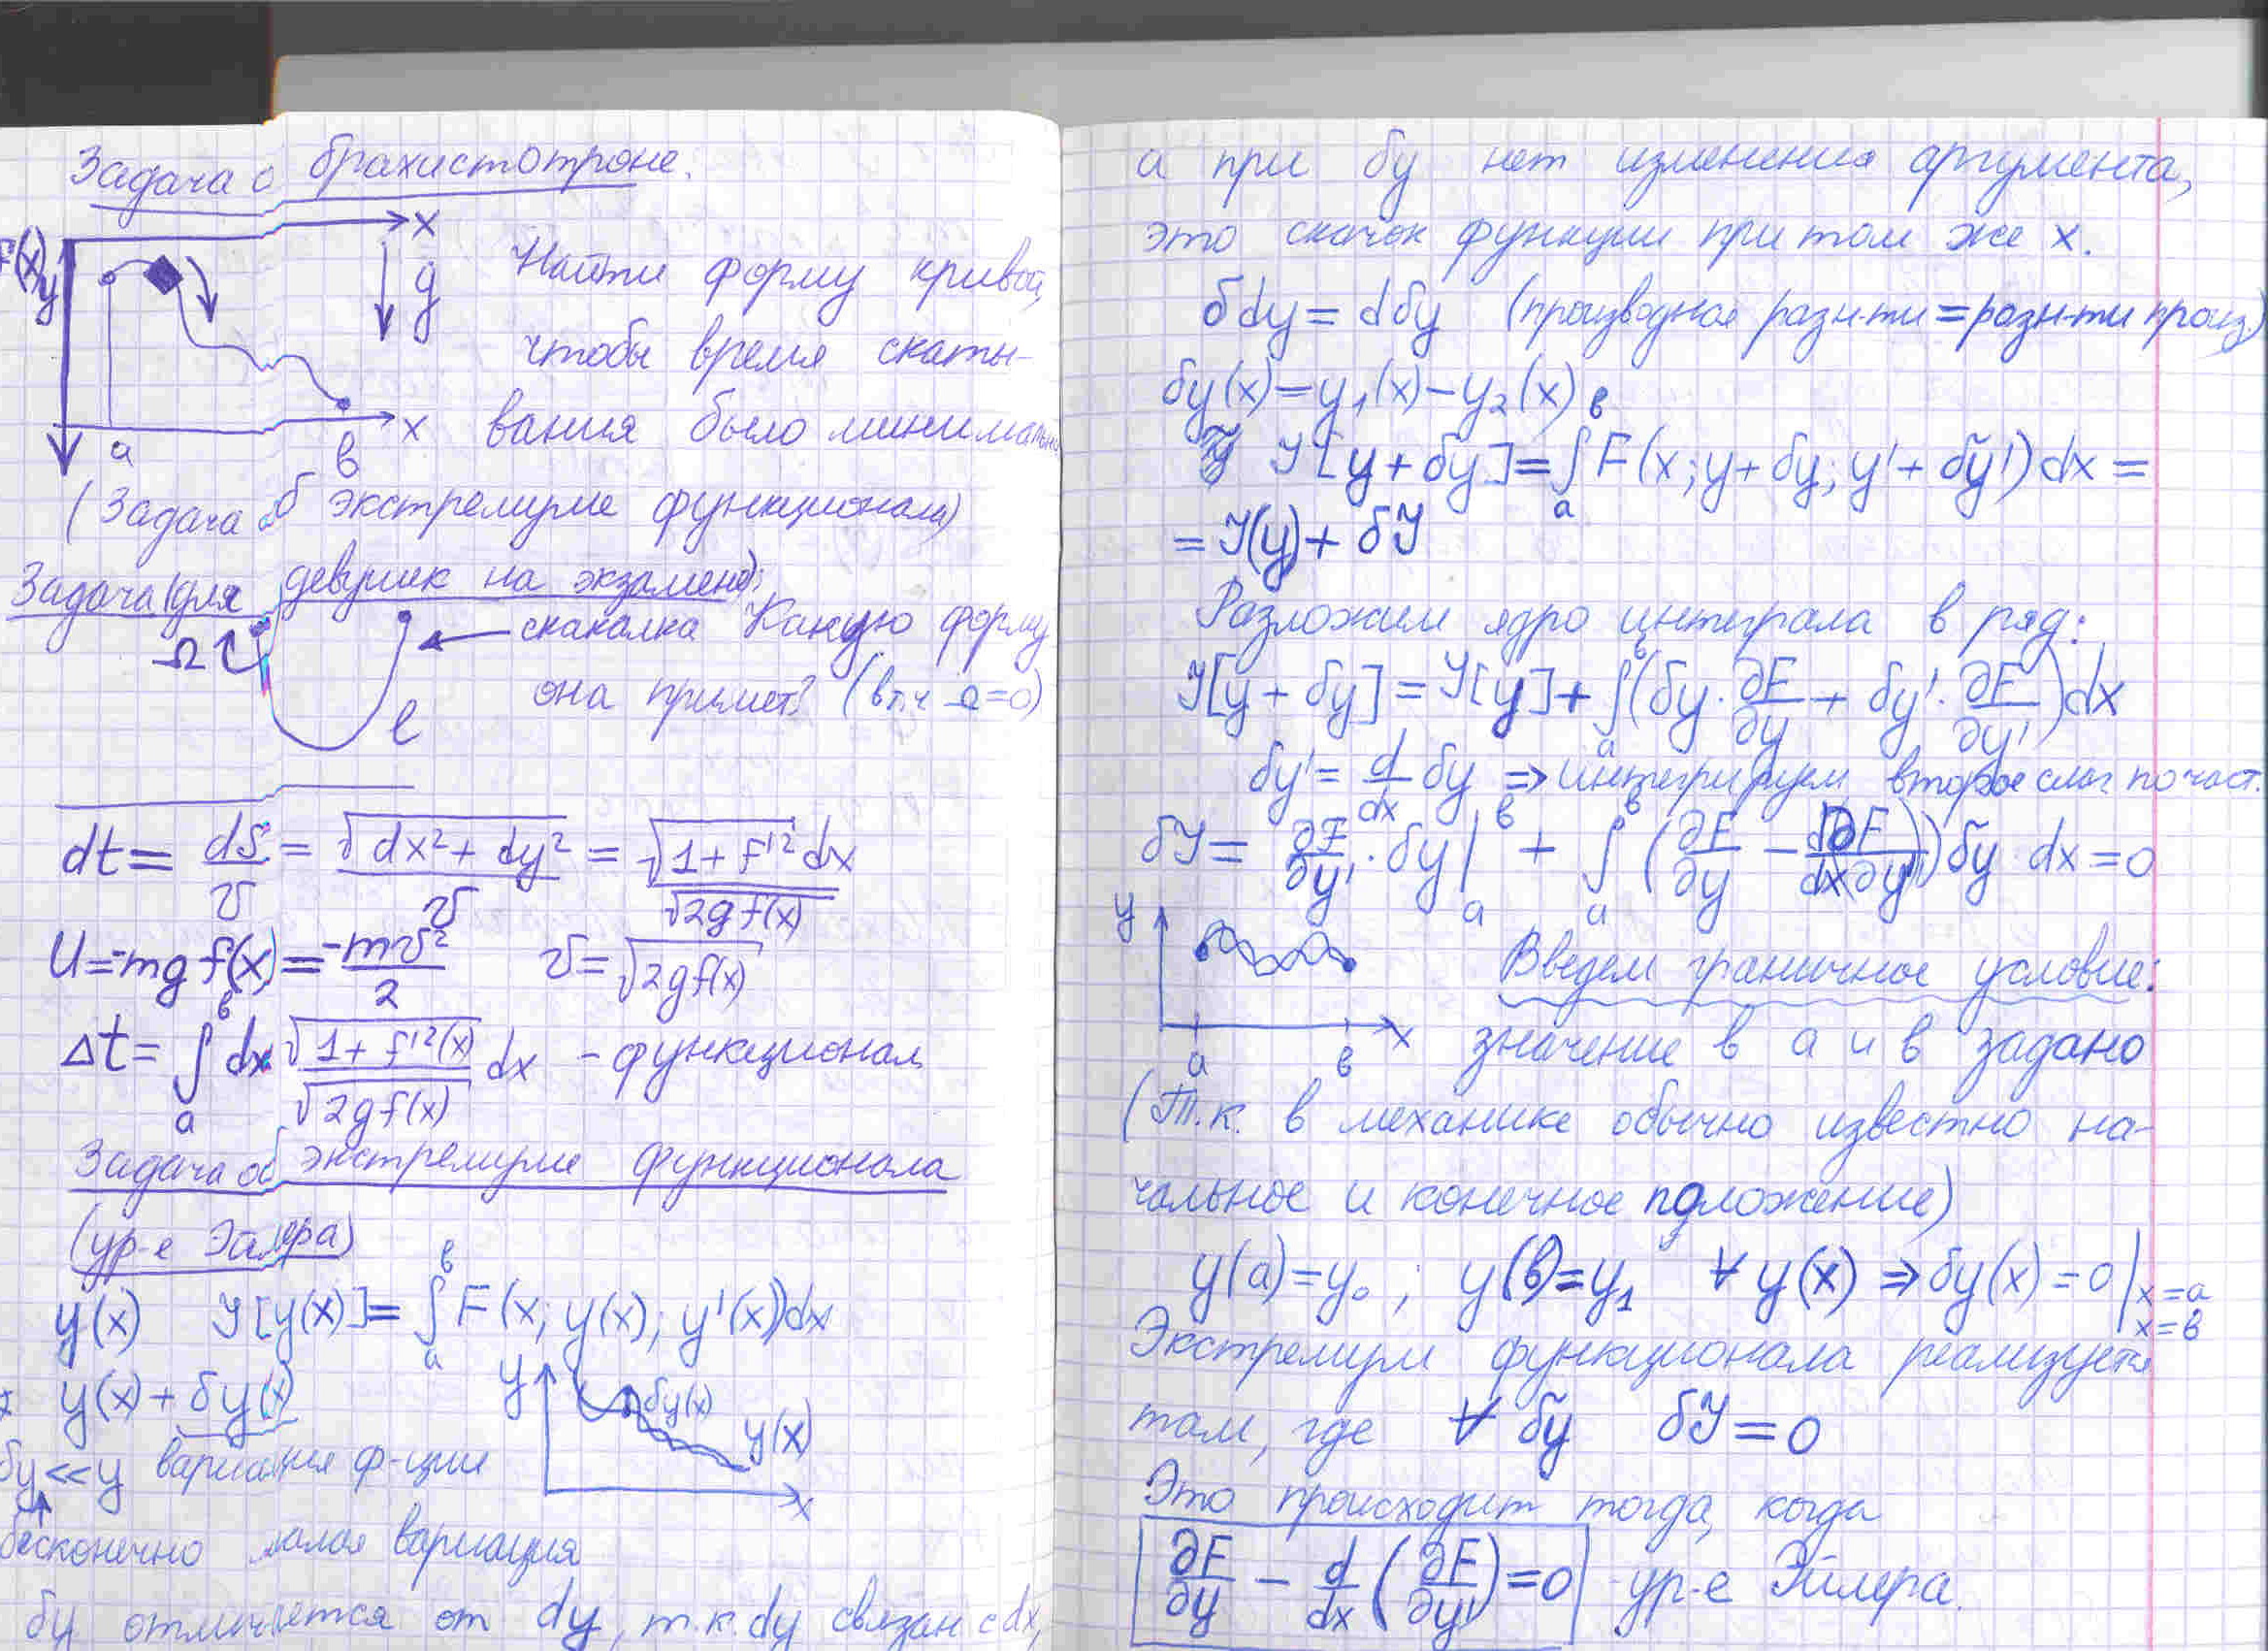 Задача о брахистотроне.
x
F(x) y
g
Найти форму кривой,
чтобы время скаты-
вания было минимально
a в x
(Задача об экстремуме функционала)
Задача (для девушек на экзамене):
Ω
скакалка Какую форму
она примет? (в т.ч Ω=0)
ℓ
dt = dS/v = √(dx²+dy²)/v = √(1+f'²) dx/√(2gf(x))
U=-mgf(x)=-mv²/2 v=√(2gf(x))
Δt = ∫ₐᵇ dx √(1+f'²(x))/√(2gf(x)) dx - функционал
Задача об экстремуме функционала
(ур-е Эйлера)
y(x) J[y(x)]=∫ₐᵇ F(x; y(x); y'(x))dx
y(x)+δy(x)
y δy(x) y(x) x
δy<<y вариация ф-ции
бесконечно малая вариация
δy отличается от dy, т.к. dy связан с dx,
а при δy нет изменения аргумента,
это скачок функции при том же x.
δdy=dδy (производная разн-ти = разн-ти произ.)
δy(x)=y₁(x)-y₂(x)
J[y+δy]=∫ₐᵇ F(x; y+δy; y'+δy')dx=
=J(y)+δJ
Разложим ядро интеграла в ряд:
J[y+δy]=J[y]+∫ₐᵇ(δy·∂F/∂y+δy'·∂F/∂y')dx
δy'=d/dx δy ⇒ интегрируем второе слаг по част.
δJ=∂F/∂y'·δy|ₐᵇ+∫ₐᵇ(∂F/∂y-d/dx ∂F/∂y')δy dx=0
y
Введем граничное условие:
a в x
значение в а и в задано
(Т.к. в механике обычно известно на-
чальное и конечное положение)
y(a)=y₀; y(в)=y₁ ∀ y(x) ⇒ δy(x)=0| x=a x=в
Экстремум функционала реализуется
там, где ∀ δy δJ=0
Это происходит тогда, когда
∂F/∂y - d/dx(∂F/∂y')=0 - ур-е Эйлера.